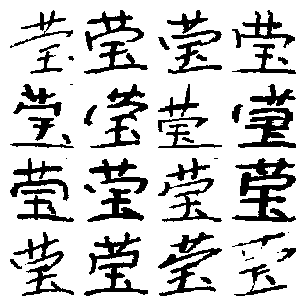 莹莹莹莹
莹莹莹莹
莹莹莹莹
莹莹莹莹